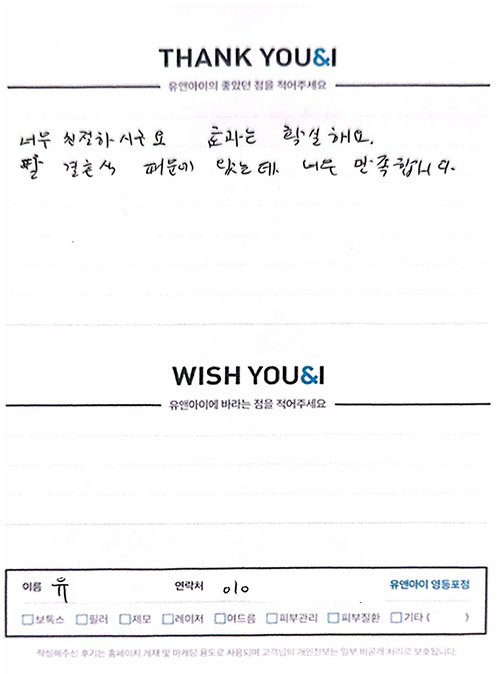 THANK YOU&I
유앤아이의 좋았던 점을 적어주세요
너무 친절하시구요 효과는 확실해요.
딸 결혼식 때문에 왔는데 너무 만족합니다.
WISH YOU&I
유앤아이에 바라는 점을 적어주세요
이름 유 연락처 010 유앤아이 영등포점
보톡스 필러 제모 레이저 여드름 피부관리 피부질환 기타 ( )
작성해주신 후기는 홈페이지 게재 및 마케팅 용도로 사용되며 고객님의 개인정보는 일부 비공개 처리로 보호됩니다.